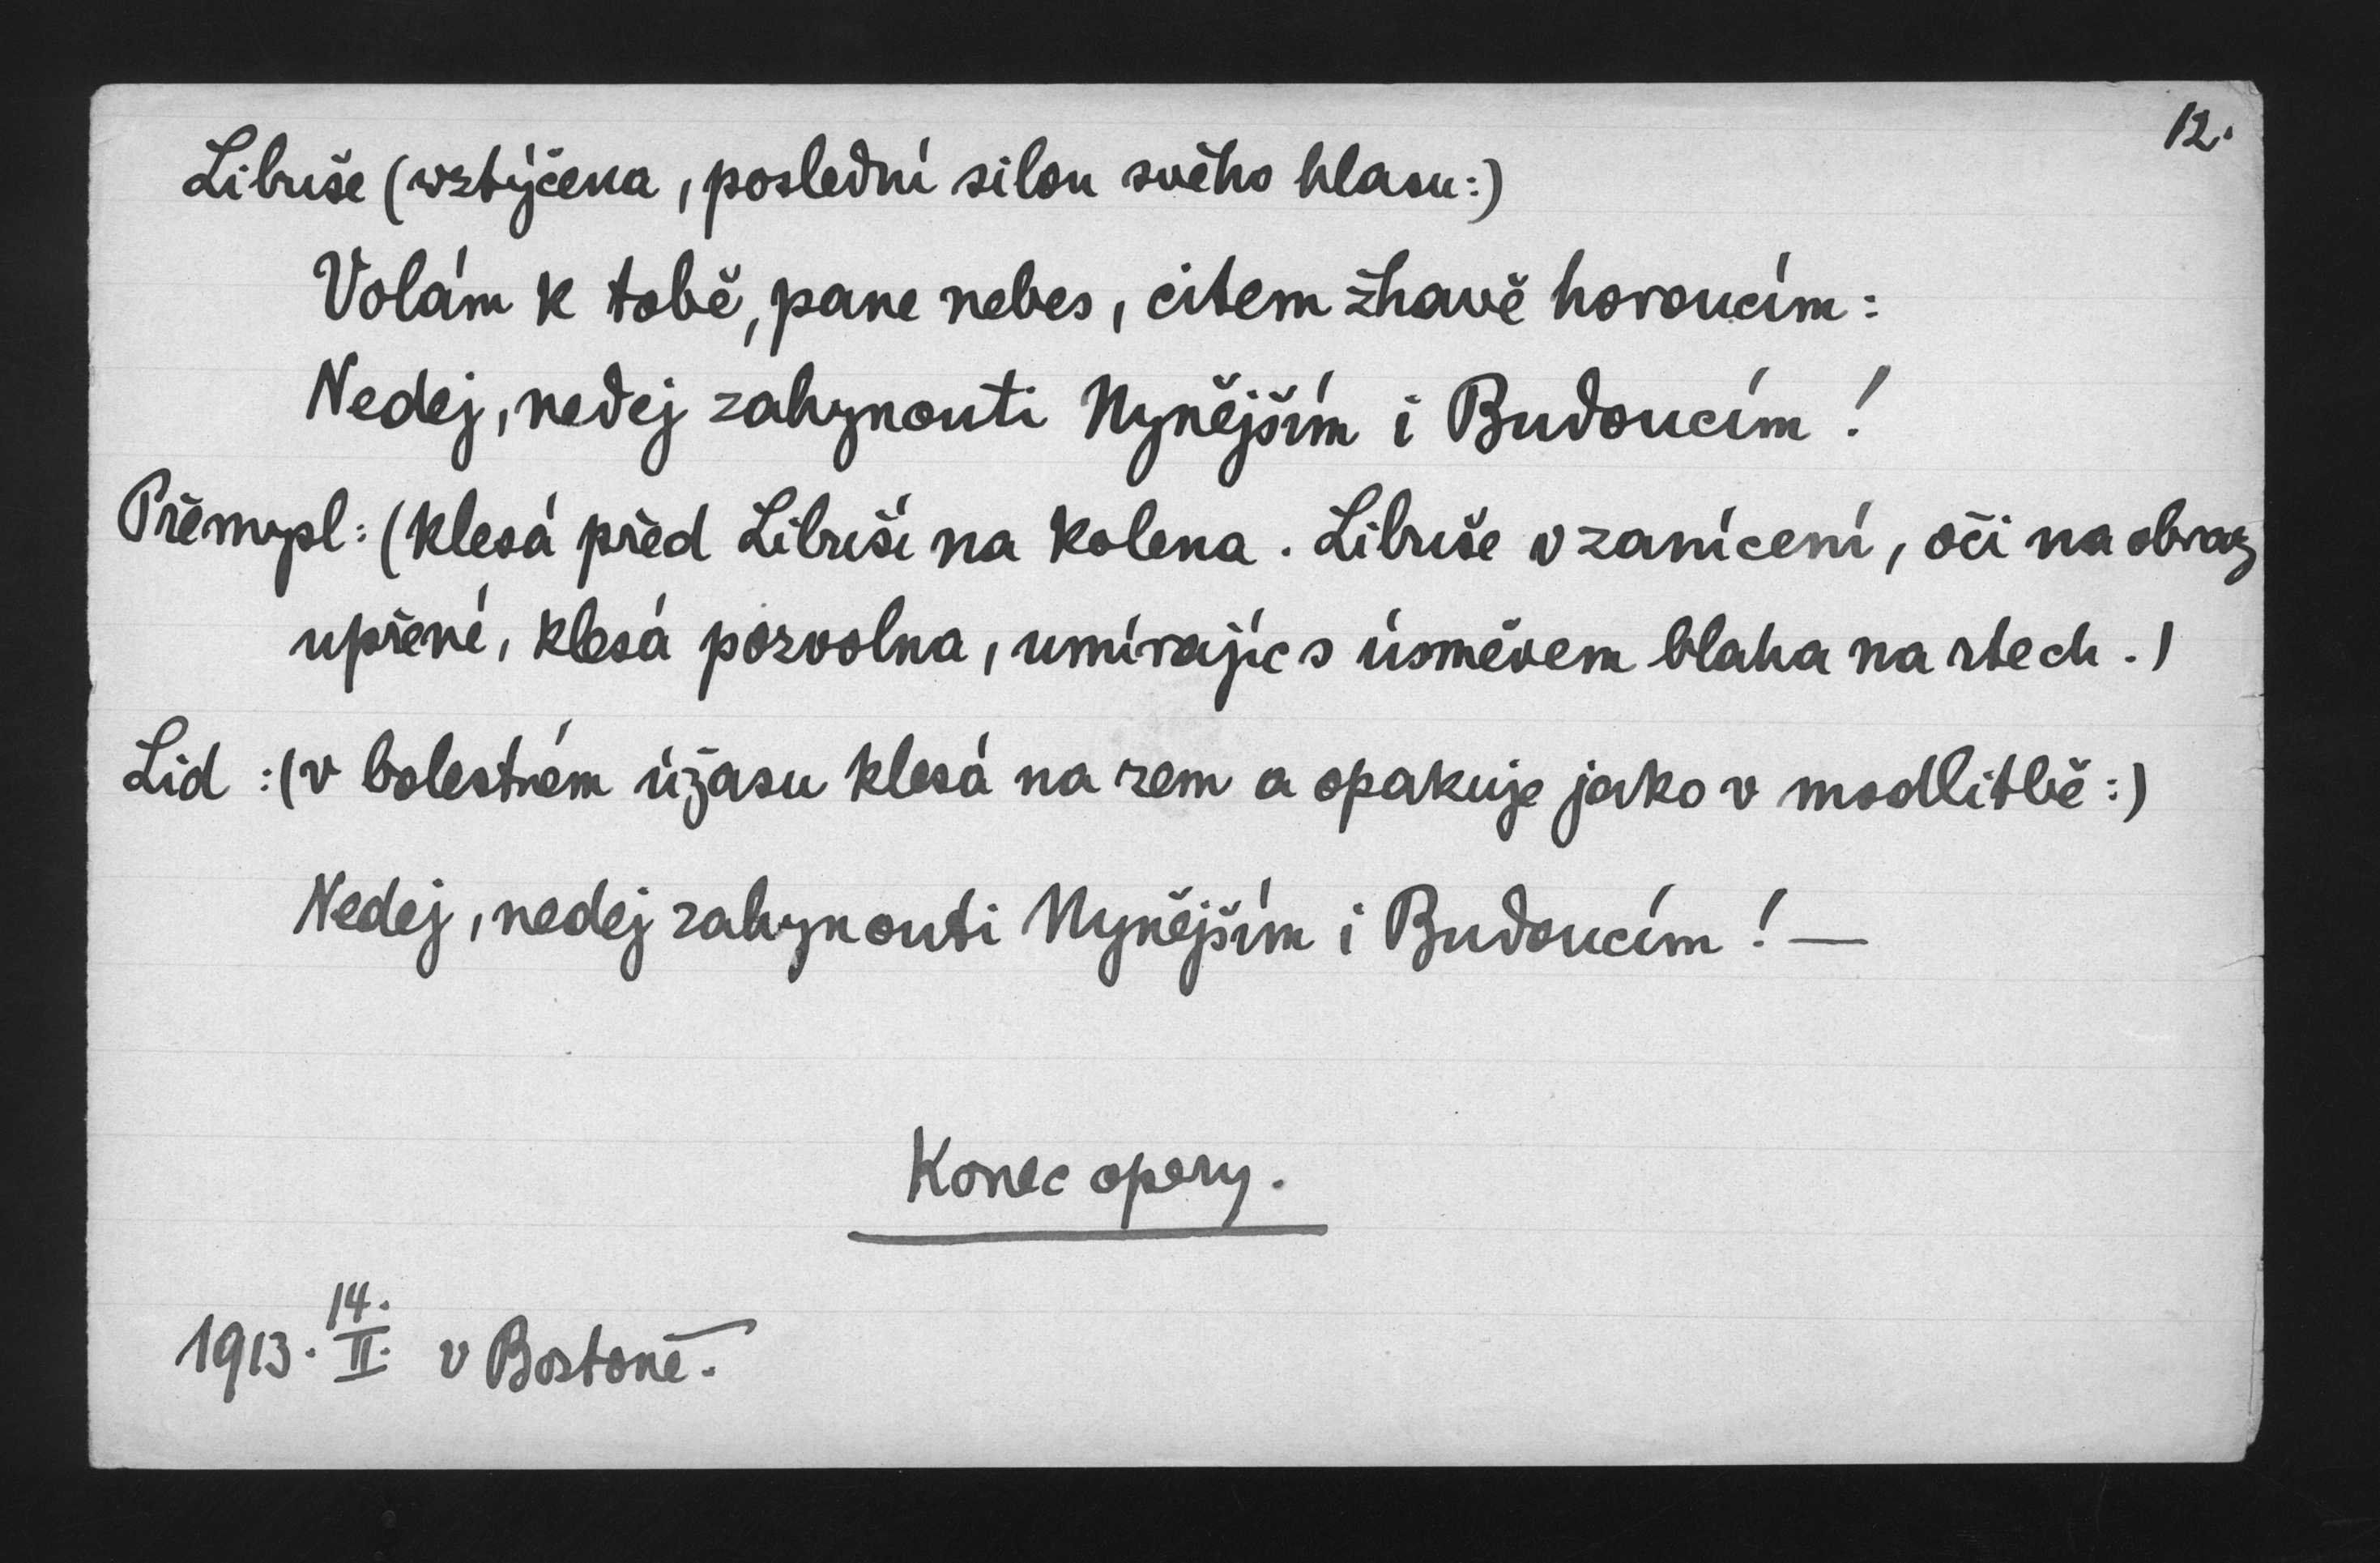 12.
Libuše (vztýčena, poslední silou svého hlasu:)
Volám k tobě, pane nebes, citem žhavě horoucím:
Nedej, nedej zahynouti Nynějším i Budoucím!
Přemysl: (klesá před Libuší na kolena. Libuše v zanícení, oči na obraz
upřené, klesá pozvolna, umírajíc s úsměvem blaha na rtech.)
Lid :(v bolestném úžasu klesá na zem a opakuje jako v modlitbě:)
Nedej, nedej zahynouti Nynějším i Budoucím! —
Konec opery.
1913. 14./II. v Bostoně.